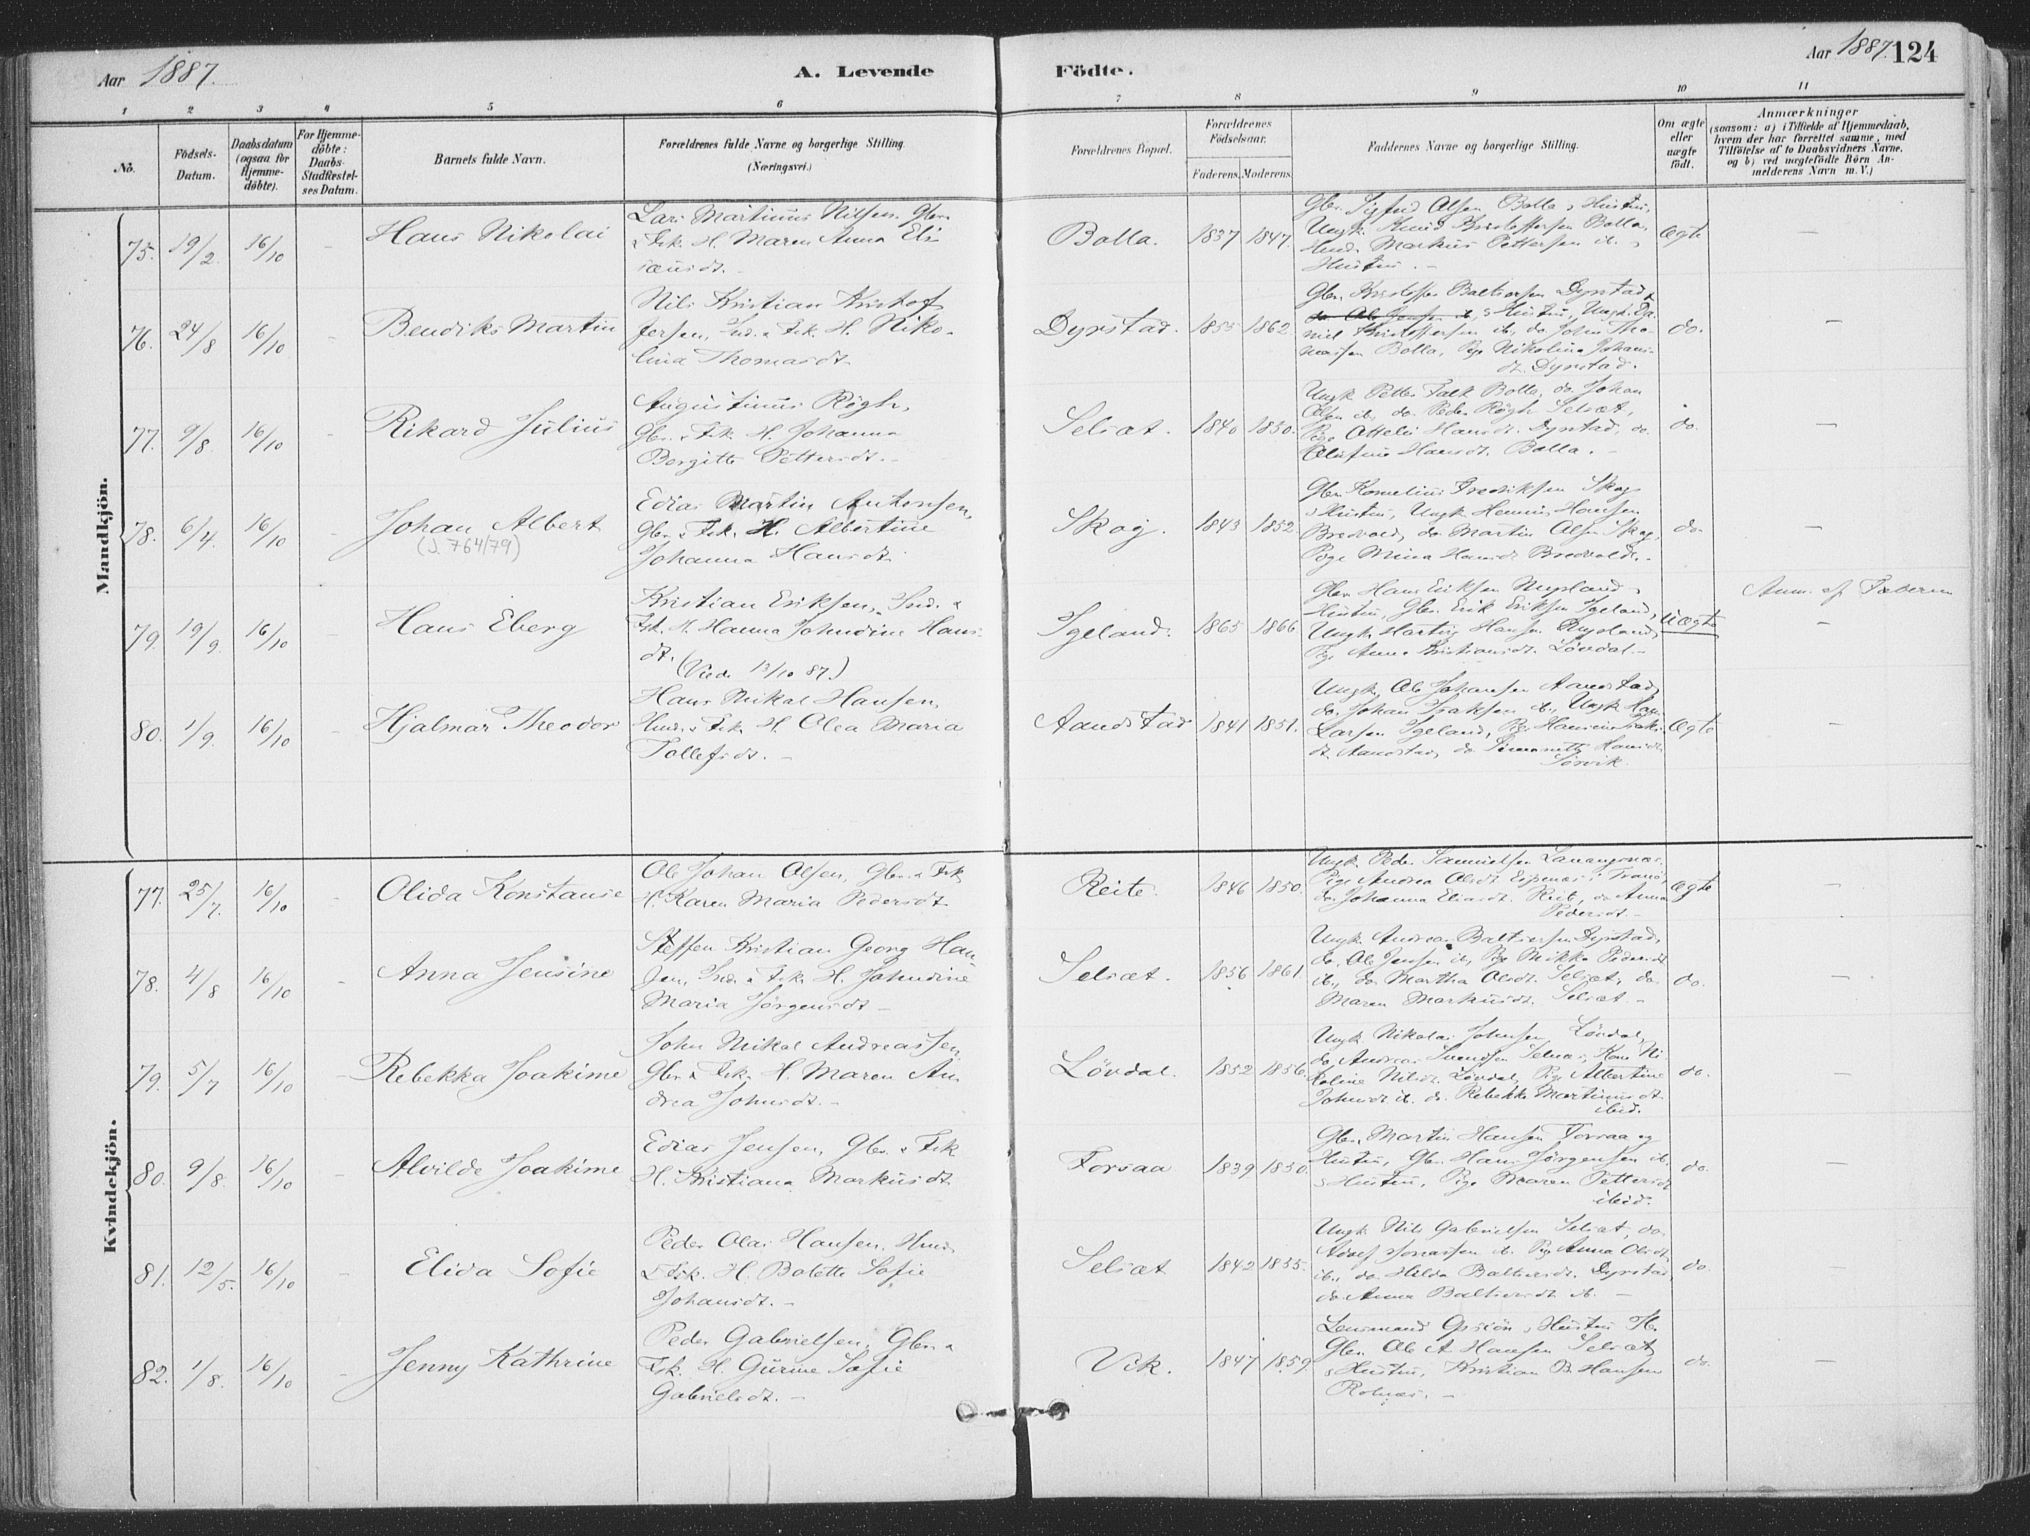 Aar 1887.
A. Levende
Födte.
Aar 1887. 124
1 2 3 4 5 6 7 8 9 10 11
No.
Födsels-Datum.
Daabsdatum (ogsaa for Hjemmedöbte).
For Hjemmedöbte: Daabs-Stadfæstelses Datum.
Barnets fulde Navn.
Forældrenes fulde Navne og borgerlige Stilling. (Næringsvei.)
Forældrenes Bopæl.
Forældrenes Födselsaar.
Faderens. Moderens.
Faddernes Navne og borgerlige Stilling.
Om ægte eller uægte födt.
Anmærkninger
(saasom: a) i Tilfælde af Hjemmedaab, hvem der har forrettet samme, med Tilföielse af to Daabsvidners Navne, og b) ved uægtefödte Börn Anmelderens Navn m. V.)
Mandkjön.
75. 19/2 16/10 - Hans Nikolai
Lars Martinus Nilsen, Gbr.
& Fsk. H. Maren Anna Eli
sæusdt. -
Bolla. 1837 1847.
Gbr. Sigfrid Olsen Bolla & Hustru,
Ungk. Knud Kristoffersen Bolla,
Hmd. Markus Pettersen ib. &
Hustru. -
Ægte -
76. 24/8 16/10 - Bendiks Martin
Nils Kristian Kristof
fersen, Ind. & Fsk. H. Niko-
lina Thomasdt.
Dyrstad. 1855 1862
Gbr. Kristoffer Baltsersen Dyrstad &
Hustru, Ungk. Da
niel Kristoffersen ib, do John Tho-
massen Bolla, Pige Nikolina Johans-
dt. Dyrstad.
do. -
77. 9/8 16/10 - Rikard Julius
Augustinus Røgh,
Gbr. & Fsk. H. Johanna
Bergitte Pettersdt. -
Selsæt. 1840 1850.
Ungk Petter Falk Bolla, do. Johan
Olsen ib, do. Peder Røgh Selsæt,
Pige Hansdt. Dyrstad, do.
Hansdt. Bolla. -
do. -
78. 6/4 16/10 - Johan Albert
(J. 764/79)
Edias Martin Antonsen,
Gbr. & Fsk. H. Albertine
Johanna Hansdt.
Skog. 1843 1852.
Gbr. Kornelius Fredriksen Skog
& Hustru, Ungk Hansen
Bredvold, do Martin Olsen Skog,
Pige Mina Hansdt Bredvold. -
do. -
79. 19/9 16/10 Hans Eberg
Kristian Eriksen, Ind. &
Fsk. H. Hanna Johndine Hans
dt. (Viede 13/10 87.)
Igeland. 1865 1866
Gbr Hans Eriksen Nupland &
Hustru, Gbr. Erik Eriksen Igeland,
Ungk. Hartvig Hansen
Pige Anna Kristiansdt. Løvdal. -
Uægte
Anm. af Faderen
-
80. 1/9 16/10 Hjalmar Theodor
Hans Mikal Hansen,
Hmd. & Fsk. H. Olea Maria
Tollefsdt. -
Aandstad 1841 1851.
Ungk. Ole Johansen Aandstad,
do. Johan Isaksen ib., Ungk.
Larsen Igeland, Pige
dt. Aandstad, do Hansdt.
Sørvik.
Ægte -
Kvindekjön.
77. 25/7 16/10 - Olida Konstanse
Ole Johan Olsen, Gbr. & Fsk.
H. Karen Maria Pedersdt.
Reite. 1846 1850.
Ungk. Peder Samuelsen
Pige Andrea Olsdt i Tranø,
do. Johanna Eliasdt. Reite, do Anna
Pedersdt. -
Ægte -
78. 4/8 16/10 - Anna Jensine
Steffen Kristian Georg Han
sen, Ind. & Fsk. H. Johndine
Maria Jørgensdt. -
Selsæt. 1856 1861
Ungk Andreas Baltsersen Dyrstad,
do. Ole Jensen ib, Pige Mikka Pedersdt
ib., do Martha Olsdt. Selsæt, do
Maren Markusdt. Selsæt. -
do. -
79. 5/7 16/10 - Rebekka Joakime
John Mikal Andreassen,
Gbr. & Fsk. H. Maren An
drea Johnsdt. -
Løvdal. 1852 1856.
Ungk Nikolai Johnsen Løvdal,
do. Andreas Kone Ni
koline Nilsdt. Løvdal, Pige Albertine
Johnsdt ib. do. Rebekka Martinusdt
ibid.
do. -
80. 9/8 16/10 - Alvilde Joakime
Edias Jensen, Gbr. & Fsk
H. Kristiana Markusdt.
Forsaa 1839 1850.
Gbr. Martin Hansen Forsaa og
Hustru, Gbr. Hans Jørgensen ib.
& Hustru, Pige Maren Pettersdt
ibid.
do. -
81. 12/5. 16/10 - Elida Sofie
Peder Olai Hansen, Hmd.
& Fsk. H. Bolette Sofie
Johansdt. -
Selsæt 1842 1855.
Ungk Nils Gabrielsen Selsæt, do.
Adolf Jonassen ib. Pige Anna Olsdt
ib., do Hilda Baltsersdt. Dyrstad,
do Anna Baltsersdt ib. -
do. -
82. 1/8. 16/10 - Jenny Kathrine
Peder Gabrielsen, Gbr. &
Fsk. H. Gurine Sofie
Gabrielsdt. -
Vik. 1847 1859.
Lensmand & Hustru
Gbr. Ole A Hansen Selsæt
& Hustru, Kristian B. Hansen
Rolnæs. -
do. -